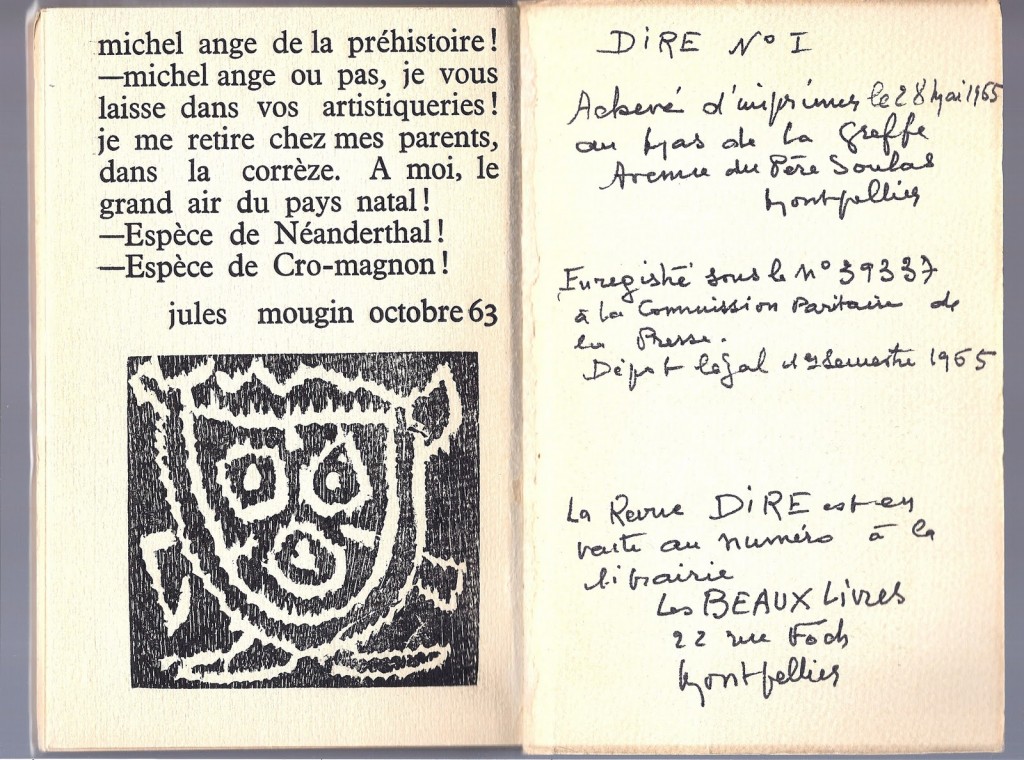 michel ange de la préhistoire !
—michel ange ou pas, je vous
laisse dans vos artistiqueries !
je me retire chez mes parents,
dans la corrèze. A moi, le
grand air du pays natal !
—Espèce de Néanderthal !
—Espèce de Cro-magnon !
jules mougin octobre 63
DIRE N° I
Achevé d'imprimer le 28 Mai 1965
au Mas de la Greffe
Avenue du Père Soulas
Montpellier
Enregistré sous le n° 39337
à la Commission Paritaire de
la Presse.
Dépot légal 1º Semestre 1965
La Revue DIRE est en
vente au numéro à la
librairie
Les BEAUX Livres
22 rue Foch
Montpellier